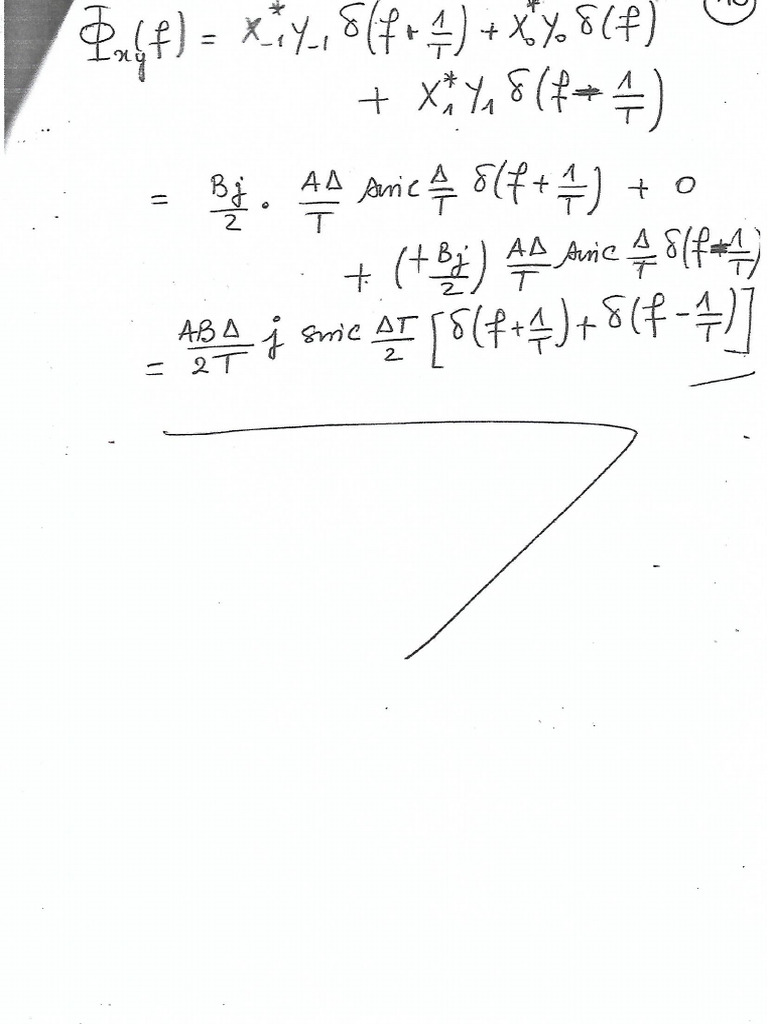 Φxy(f) = X₋₁* Y₋₁ δ(f + 1/T) + X₀* Y₀ δ(f)
+ X₁* Y₁ δ(f - 1/T)
= Bj/2 · AΔ/T sinc Δ/T δ(f + 1/T) + 0
+ (+Bj/2) AΔ/T sinc Δ/T δ(f - 1/T)
= ABΔ/2T j sinc ΔT/2 [δ(f + 1/T) + δ(f - 1/T)]